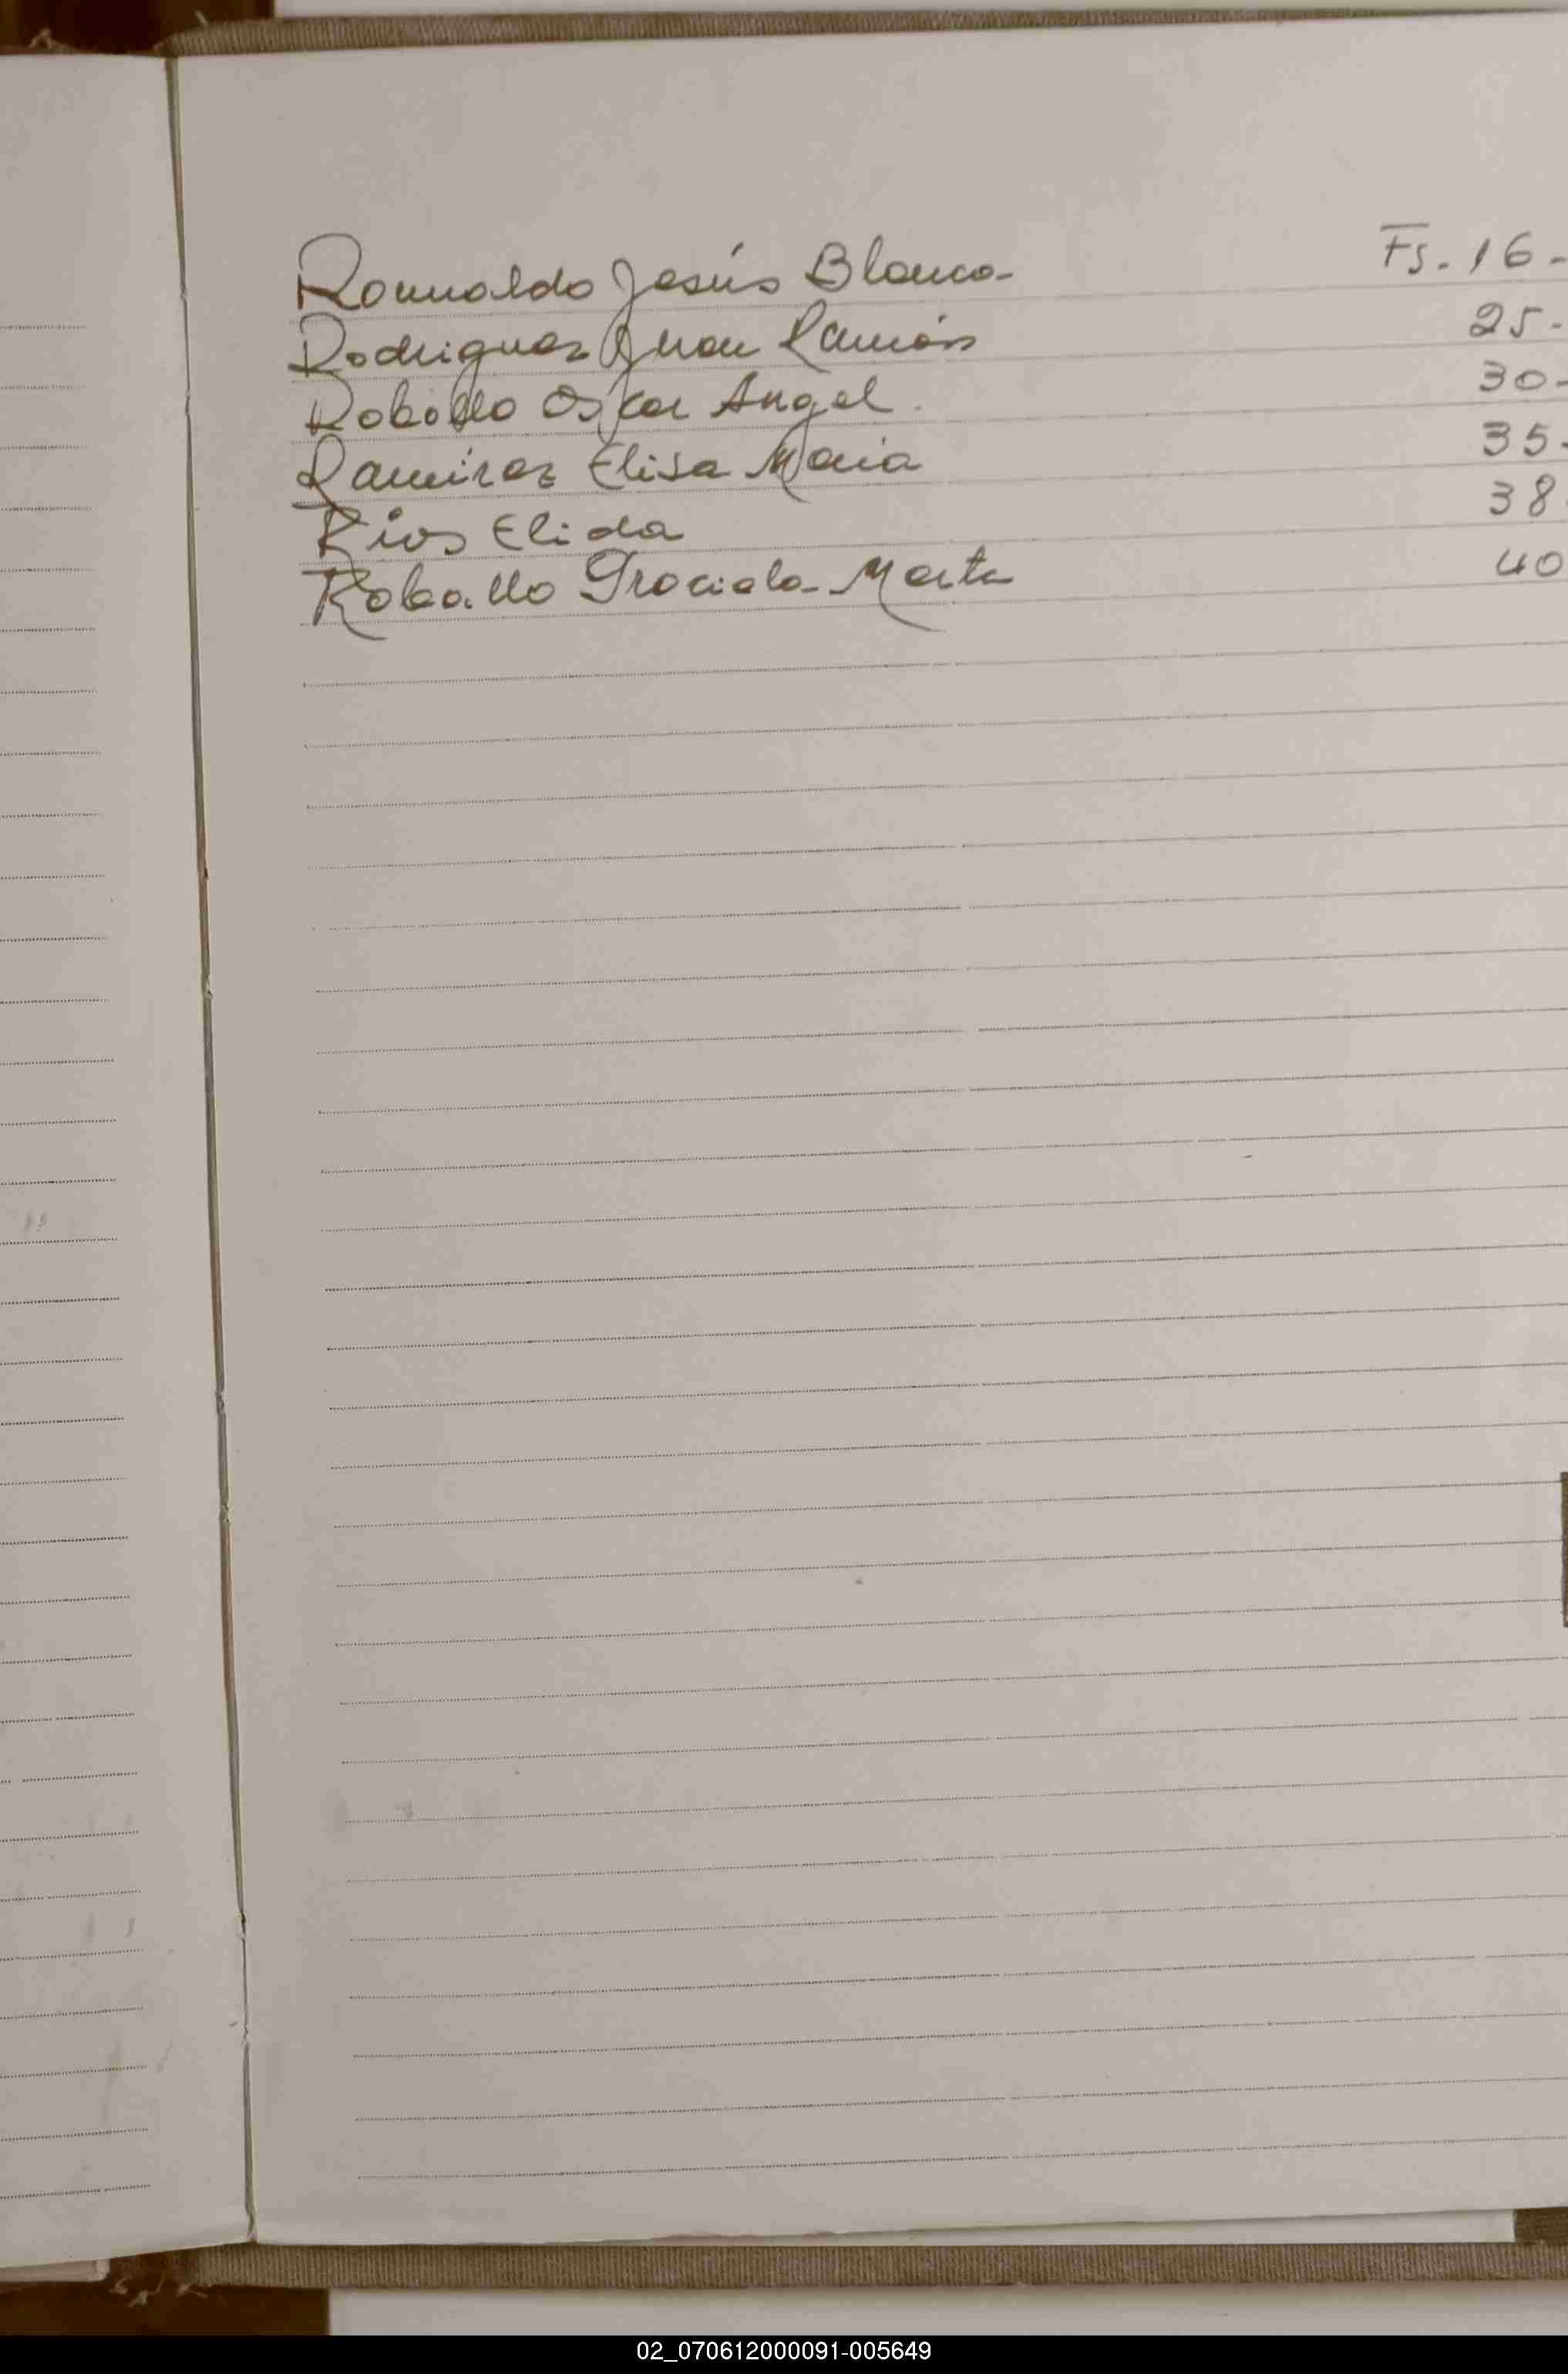 Romualdo Jesús Blanco- Fs. 16-
Rodriguez Juan Ramón 25-
Roballo Oscar Angel. 30-
Ramírez Elisa María 35-
Rios Elida 38-
Roballo Graciela Marta 40
02_070612000091-005649